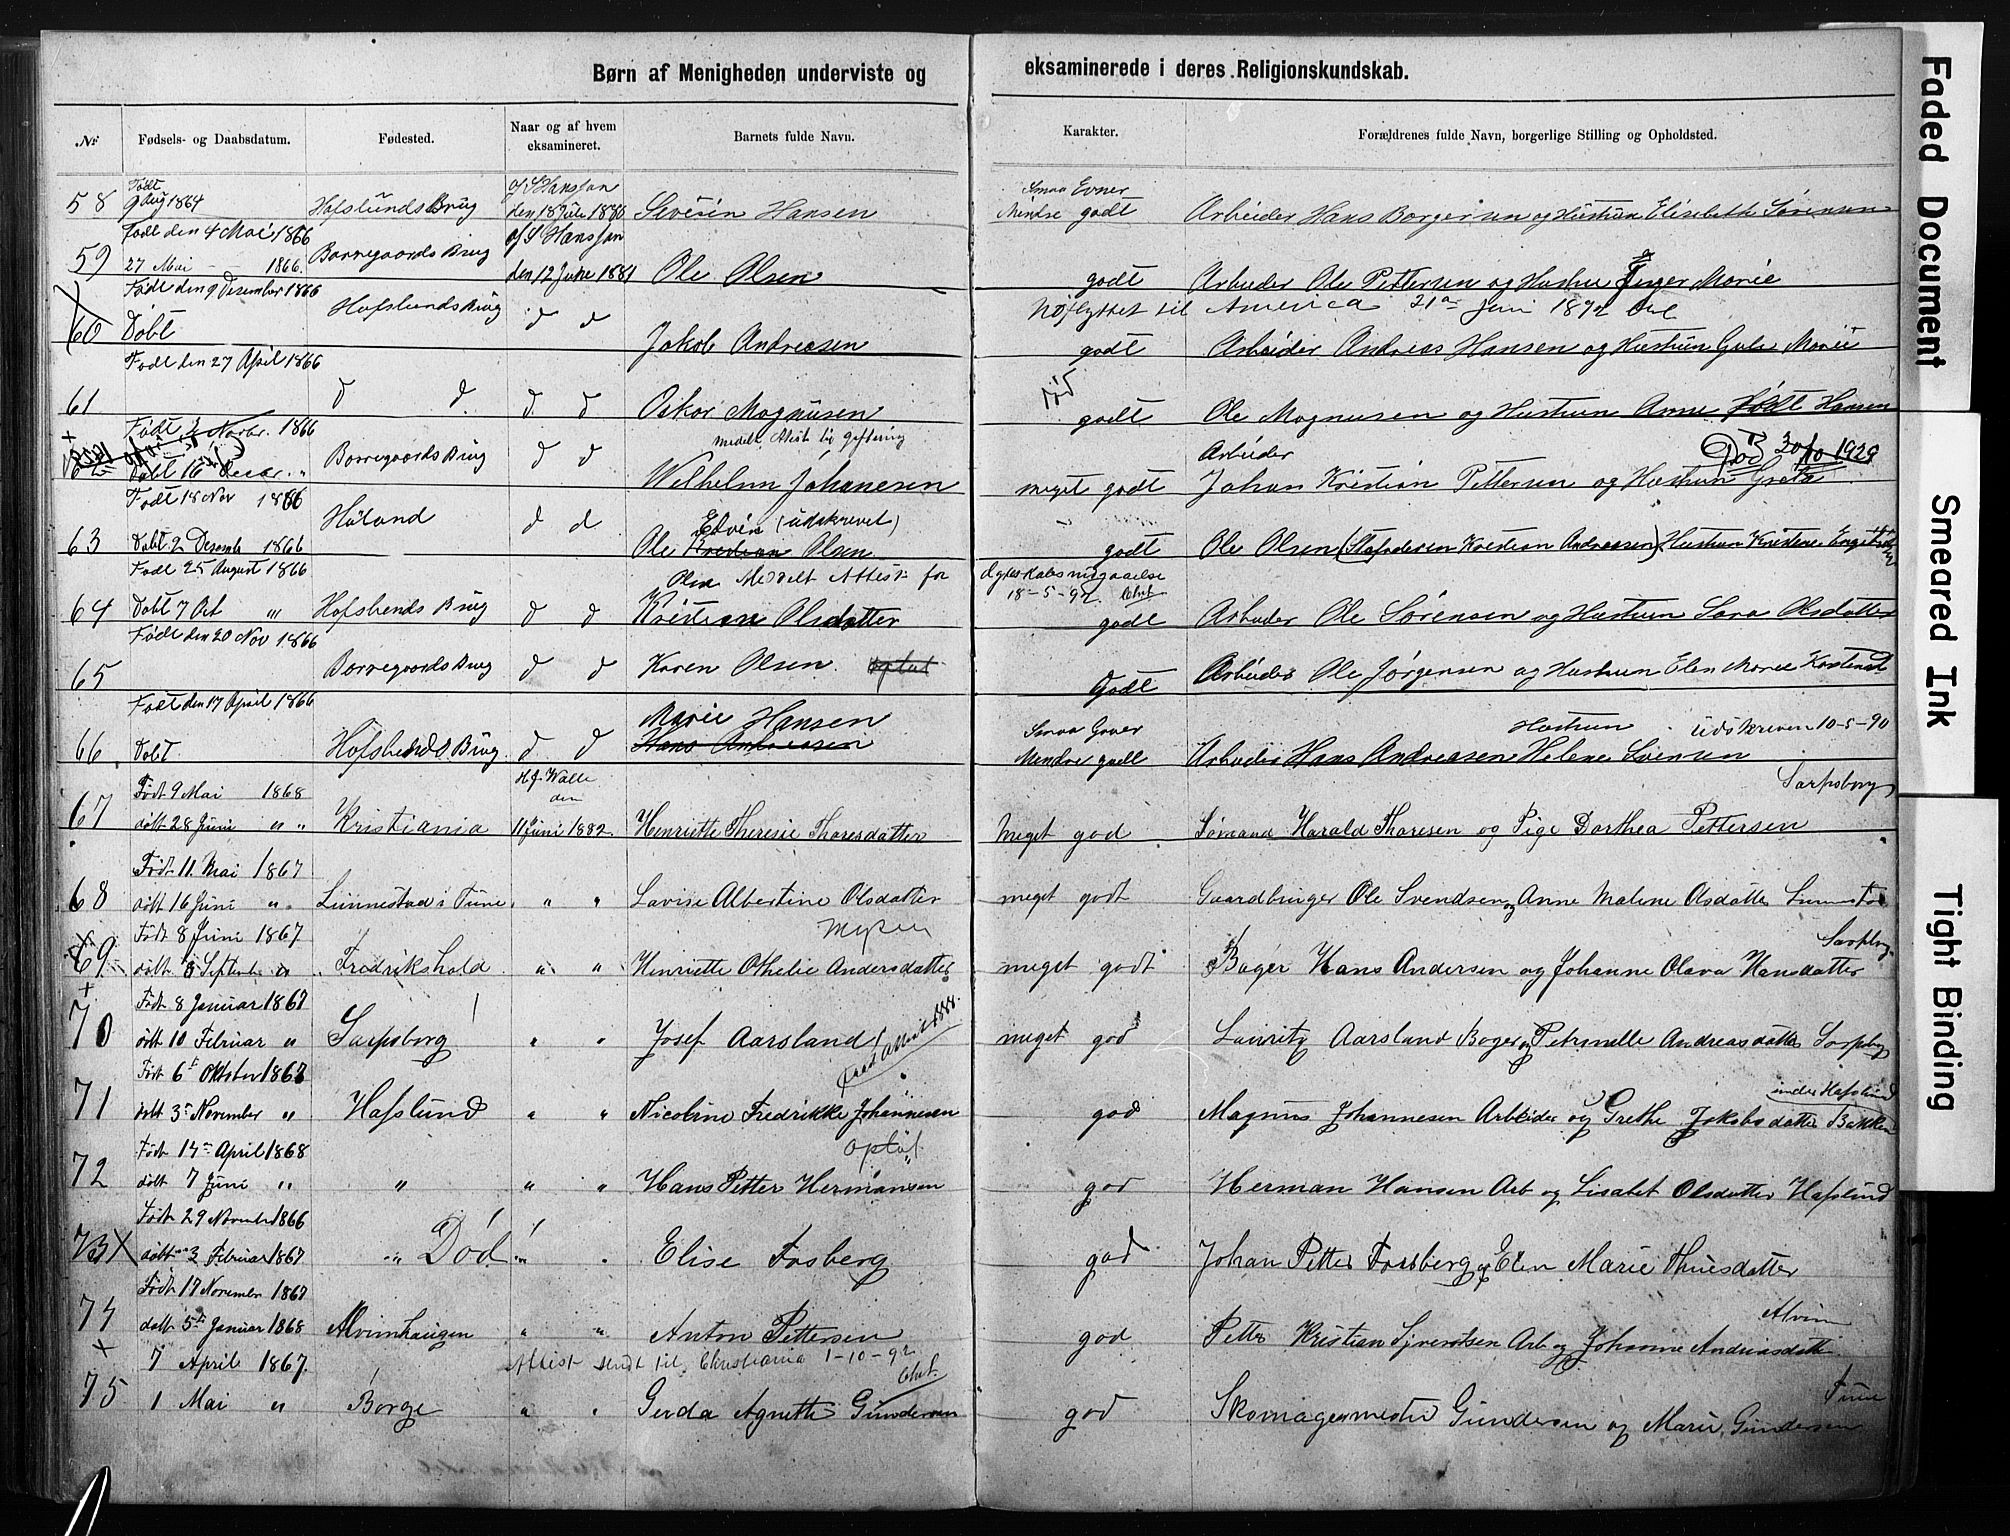 Børn af Menigheden underviste og eksaminerede i deres Religionskundskab.
№ Fødsels- og Daabsdatum. Fødested. Naar og af hvem eksamineret. Barnets fulde Navn. Karakter. Forældrenes fulde Navn, borgerlige Stilling og Opholdsted.
Født af S Hansson Smaa Evner
58 9 Aug 1864 Hafslunds Brug den 18 1880 Severin Hansen Mindre godt Arbeider Hans Borgersen og Hustrun Elisebeth Sørensen
Født den 4 Mai 1866 af S Hansson
59 27 Mai 1866. Borregaards Brug den 12 June 1881 Ole Olsen godt Arbeider Ole Pettersen og Hustru Inger Marie
Født den 9 Desember 1866 til America 21 Juni 1892
60 Døbt Hafslunds Brug d d Jakob Andreasen godt Arbeider Andreas Hansen og Hustrun Marie
Født den 27 April 1866
61 d d d d Oskar Magnusen godt Ole Magnusen og Hustrun Anne født Hansen
Født 2 Novbr. 1866 Arbeider Død 30/10-1929
62 Døbt 16 Decbr. " Borregaards Brug d d Wilhelm Johanesen meget godt Johan Kristian Pettersen og Hustrun Greta
Født 18 Nov 1866 Edvin (udskrevet)
63 Døbt 2 Desemb 1866 Høland d d Ole Kristian Olsen godt Ole Olsen (Stafaderen Kristian Andreasen) Hustrun Kristine
Født 25 August 1866 Olsen Meddelt Attest for
18-5-92. Chr.
64 Døbt 7 Oct " Hafslunds Brug d d Kristian Olsdatter godt Arbeider Ole Sørensen og Hustrun Sara Olsdatter
Født den 20 Nov 1866
65 Borregaards Brug d d Karen Olsen godt Arbeider Ole Jørgensen og Hustrun Elen Marie
Født den 17 April 1866 Marie Hansen Smaa Gaver Hustrun udskreven 10-5-90
66 Døbt Hafslunds Brug d d Hans Andreasen Mindre godt Arbeider Hans Andreasen Helene Svensen
Født 9 Mai 1868 H. J. Walle den Sarpsborg
67 døbt 28 Juni " " Kristiania 11 Juni 1882 Henriette Theresie Thoresdatter Meget god Sømand Harald Thoresen og Pige Dorthea Pettersen
Født 11. Mai 1867
68 døbt 16 Juni " " Lunnestad i Tune " " Lovise Albertine Olsdatter meget godt Gaardbruger Ole Svendsen og Anne Malene Olsdatter
Født 8 Juni 1867. Mysen Sarpsborg
69 døbt 8 Septemb " Fredrikshald " " Henriette Othelie Andersdatter meget godt Bager Hans Andersen og Johanne Olava Hansdatter
Født 8 Januar 1867
70 døbt 10 Februar " Sarpsborg " " Josef Aarsland meget god Lauritz Aarsland Bager og Petrnelle Andreasdatter Sarpsborg
Født 6te Oktober 1867 under Hafslund
71 døbt 3 November " Hafslund " " Nicoline Fredrikke Johannesen god Magnus Johannesen Arbeider og Grethe Jakobsdatter Bakken
Født 14 April 1868 Optat
72 døbt 7 Juni " " " " Hans Petter Hermansen god Herman Hansen Arb og Lisabet Olsdatter Hafslund
Født 29 November 1866
73 døbt 3 Februar 1867 " Død " " Elise Fosberg god Johan Petter Forsberg og Elen Marie Thuesdatter
Født 17 November 1867 Alvim
74 døbt 5te Januar 1868 Alvimhaugen " " Anton Pettersen god Petter Kristian Arb og Johanne Andreasdatter
7 April 1867. Attest sendt til Christiania 1-10-92 Chr. Tune
75 1 Mai " Borge " " Gerda Agnethe Gundersen god Skomagermester Gundersen og Marie Gundersen
Faded Document
Smeared Ink
Tight Binding